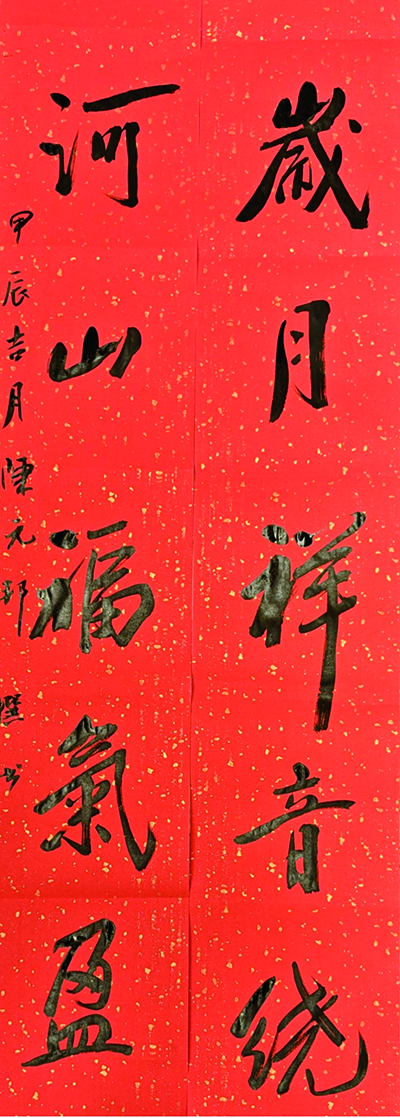 歲月祥音绕
河山福氣盈
甲辰吉月陳元邦撰书